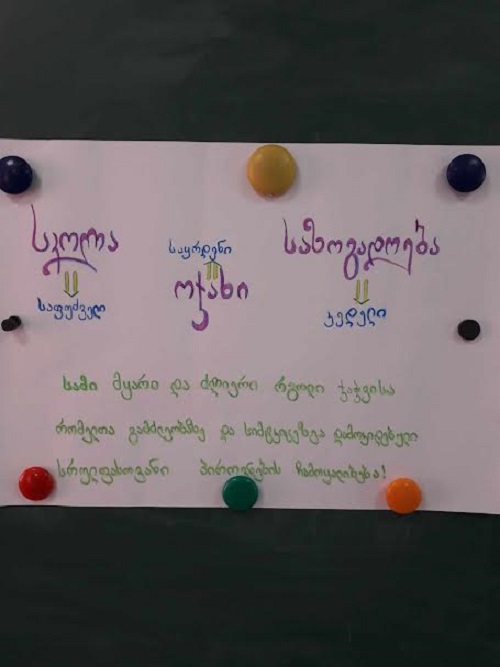 სკოლა
საფუძველი
საყრდენი
ოჯახი
საზოგადოება
კედელი
სამი მყარი და ძლიერი რგოლი ჯაჭვისა
რომელთა გამძლეობაზე და სიმტკიცეზეა დამოკიდებული
სრულფასოვანი პიროვნების ჩამოყალიბება!